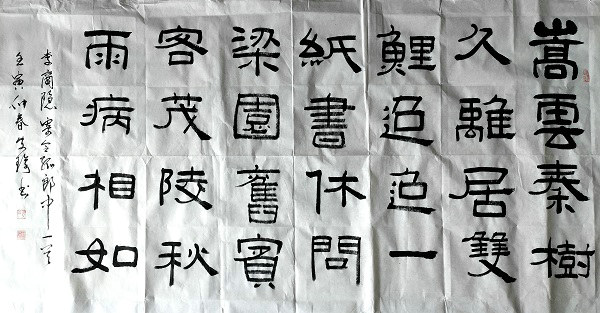 嵩雲秦樹
久離居雙
鯉迢迢一
紙書休問
梁園舊賓
客茂陵秋
雨病相如
李商隱寄令狐郎中一首
壬寅仲春书